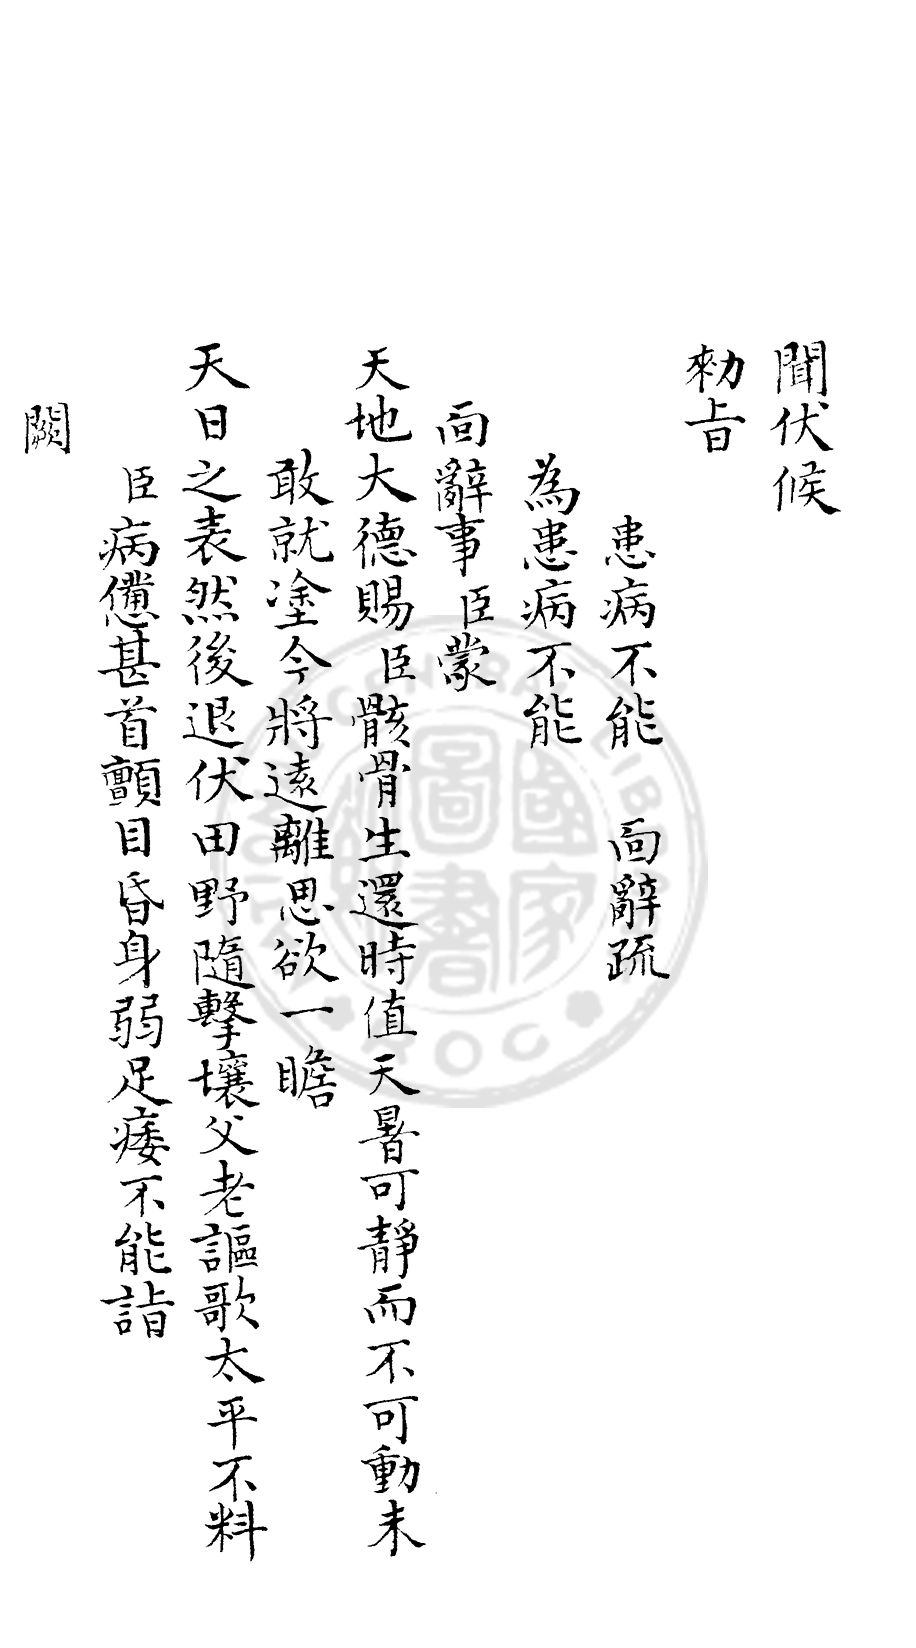 聞伏候
勑旨
患病不能　靣辭疏
為患病不能
靣辭事臣蒙
天地大德賜臣骸骨生還時值天暑可靜而不可動未
敢就塗今將遠離思欲一瞻
天日之表然後退伏田野隨擊壤父老謳歌太平不料
臣病憊甚首顫目昏身弱足痿不能詣
闕
國家圖書
CENTRAL LIB
ROC